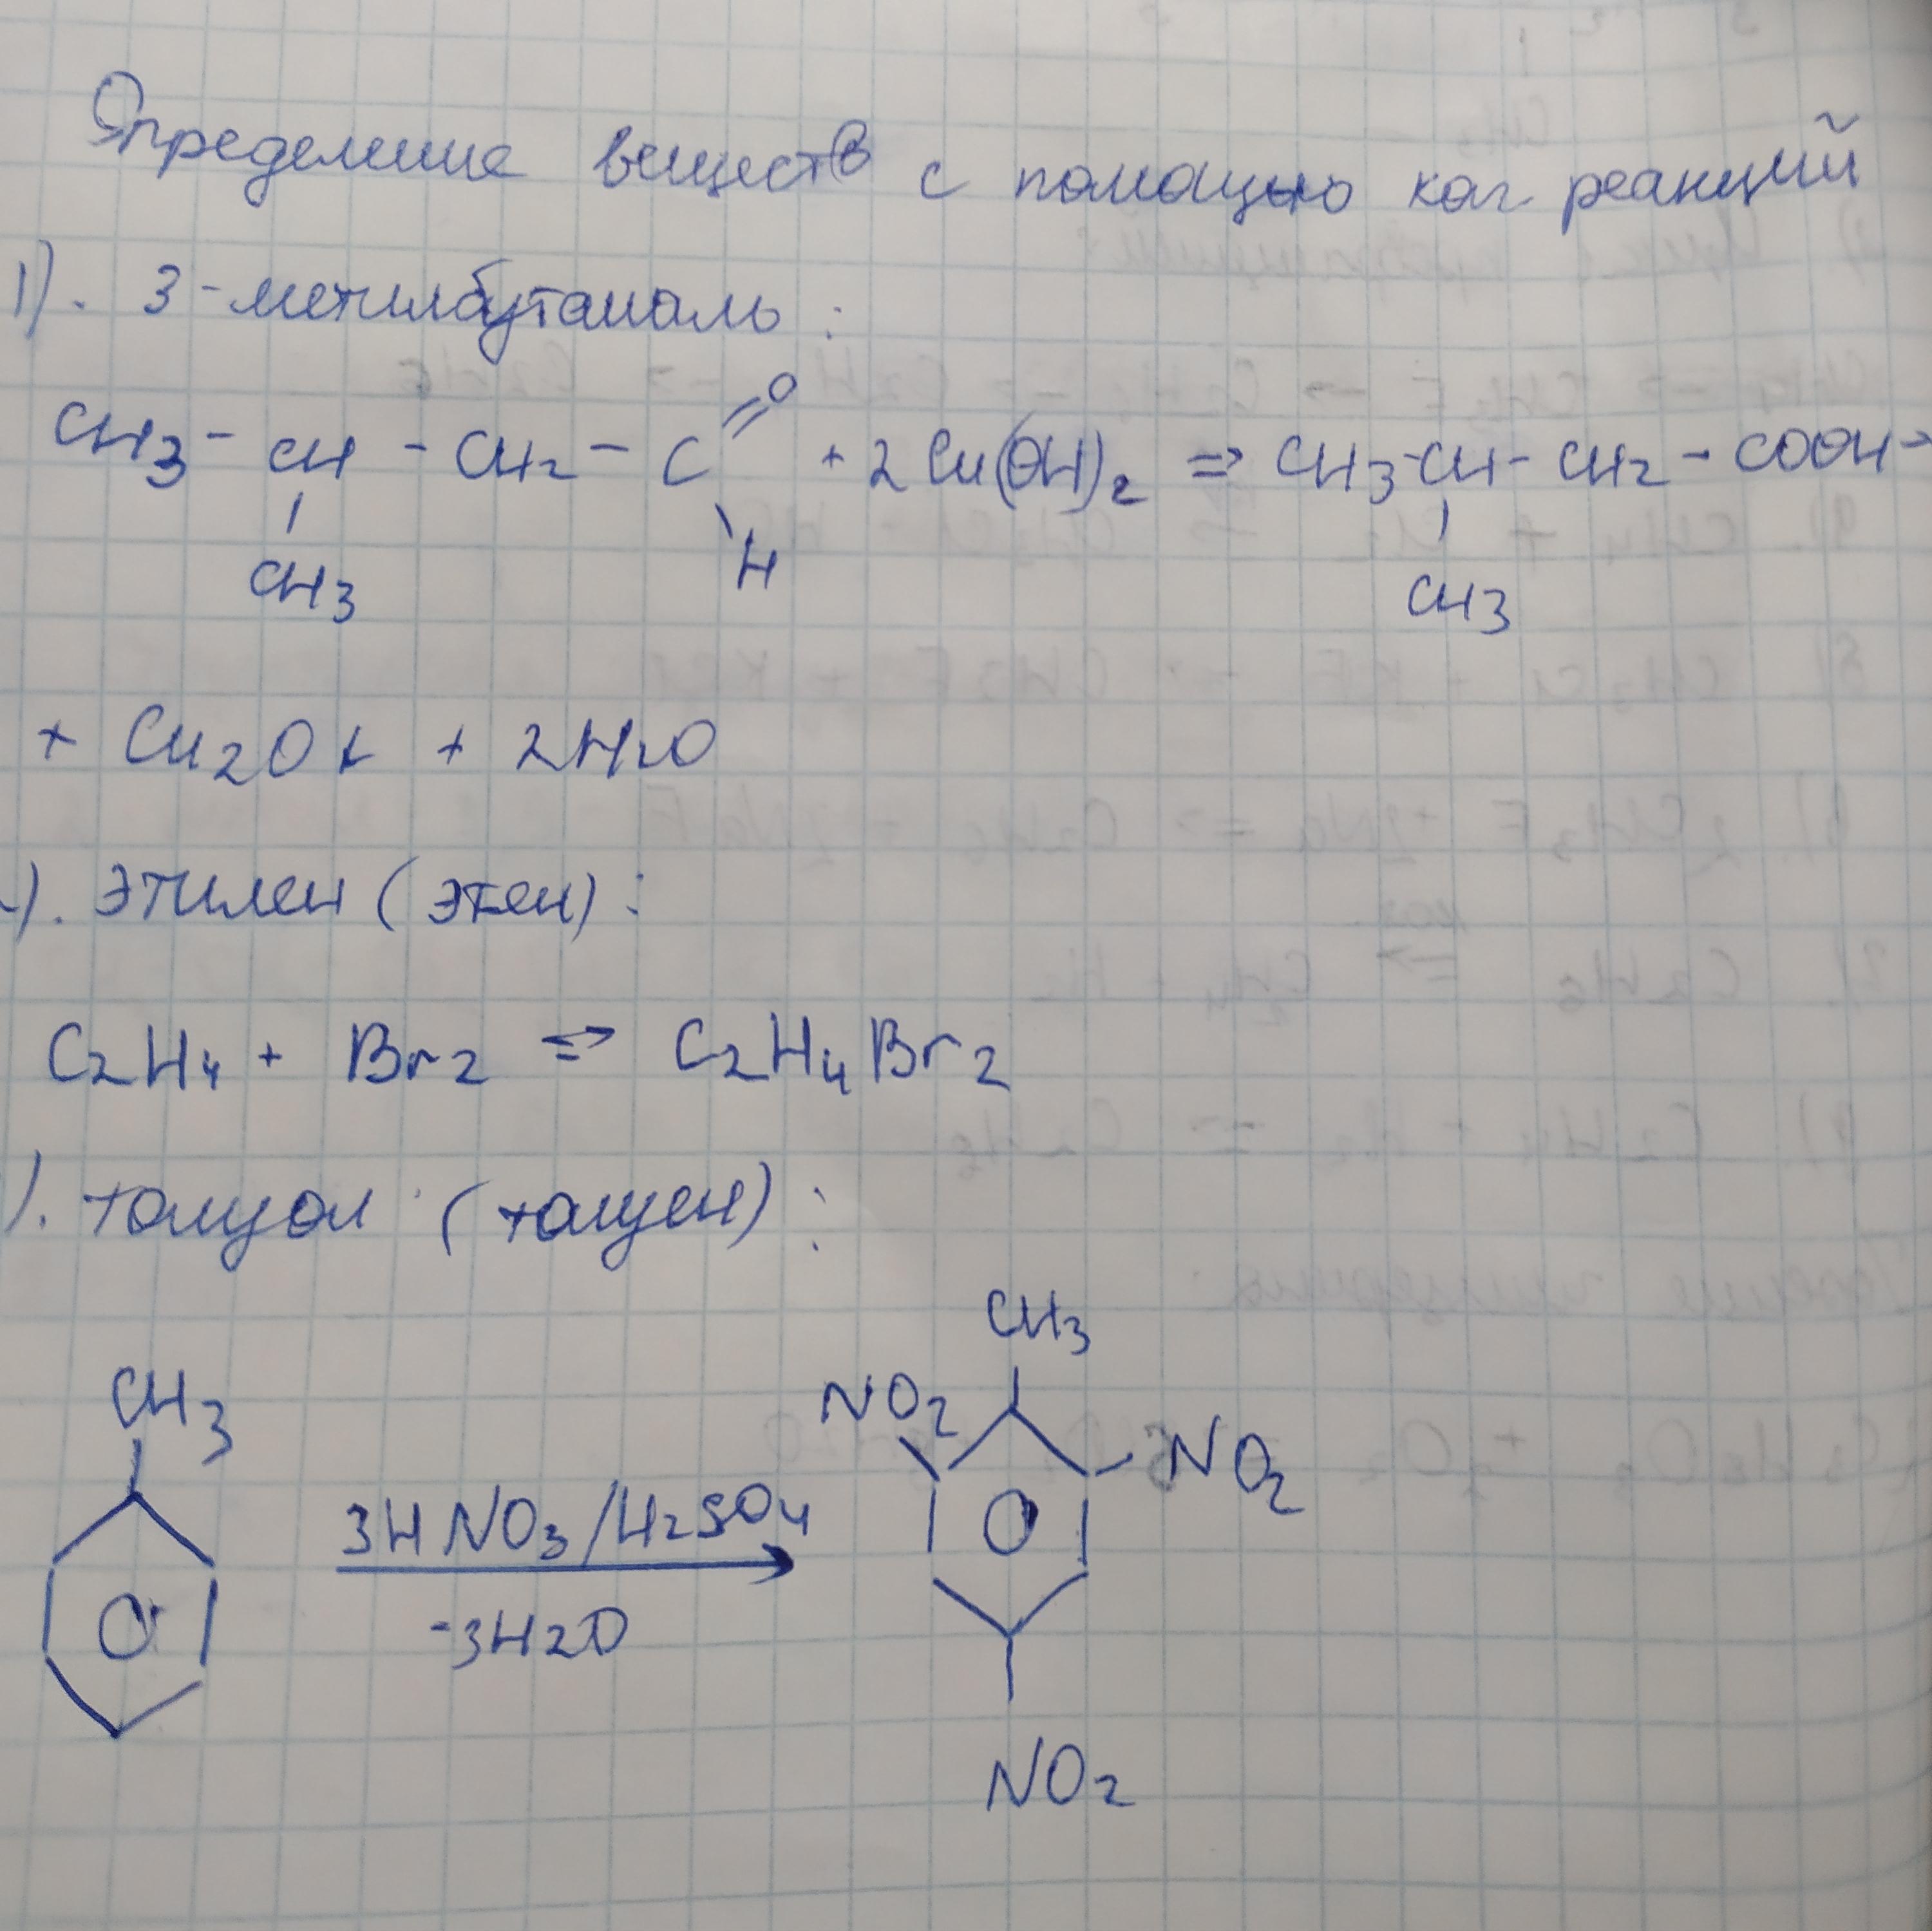 Определение веществ с помощью кач. реакций
1). 3-метилбутаналь:
CH3 - CH - CH2 - C =O + 2 Cu(OH)2 => CH3 - CH - CH2 - COOH →
CH3 H CH3
+ Cu2O↓ + 2H2O
). этилен (этен):
C2H4 + Br2 => C2H4Br2
). толуол (толуен):
CH3
NO2
CH3 NO2
3HNO3/H2SO4
-3H2O
NO2